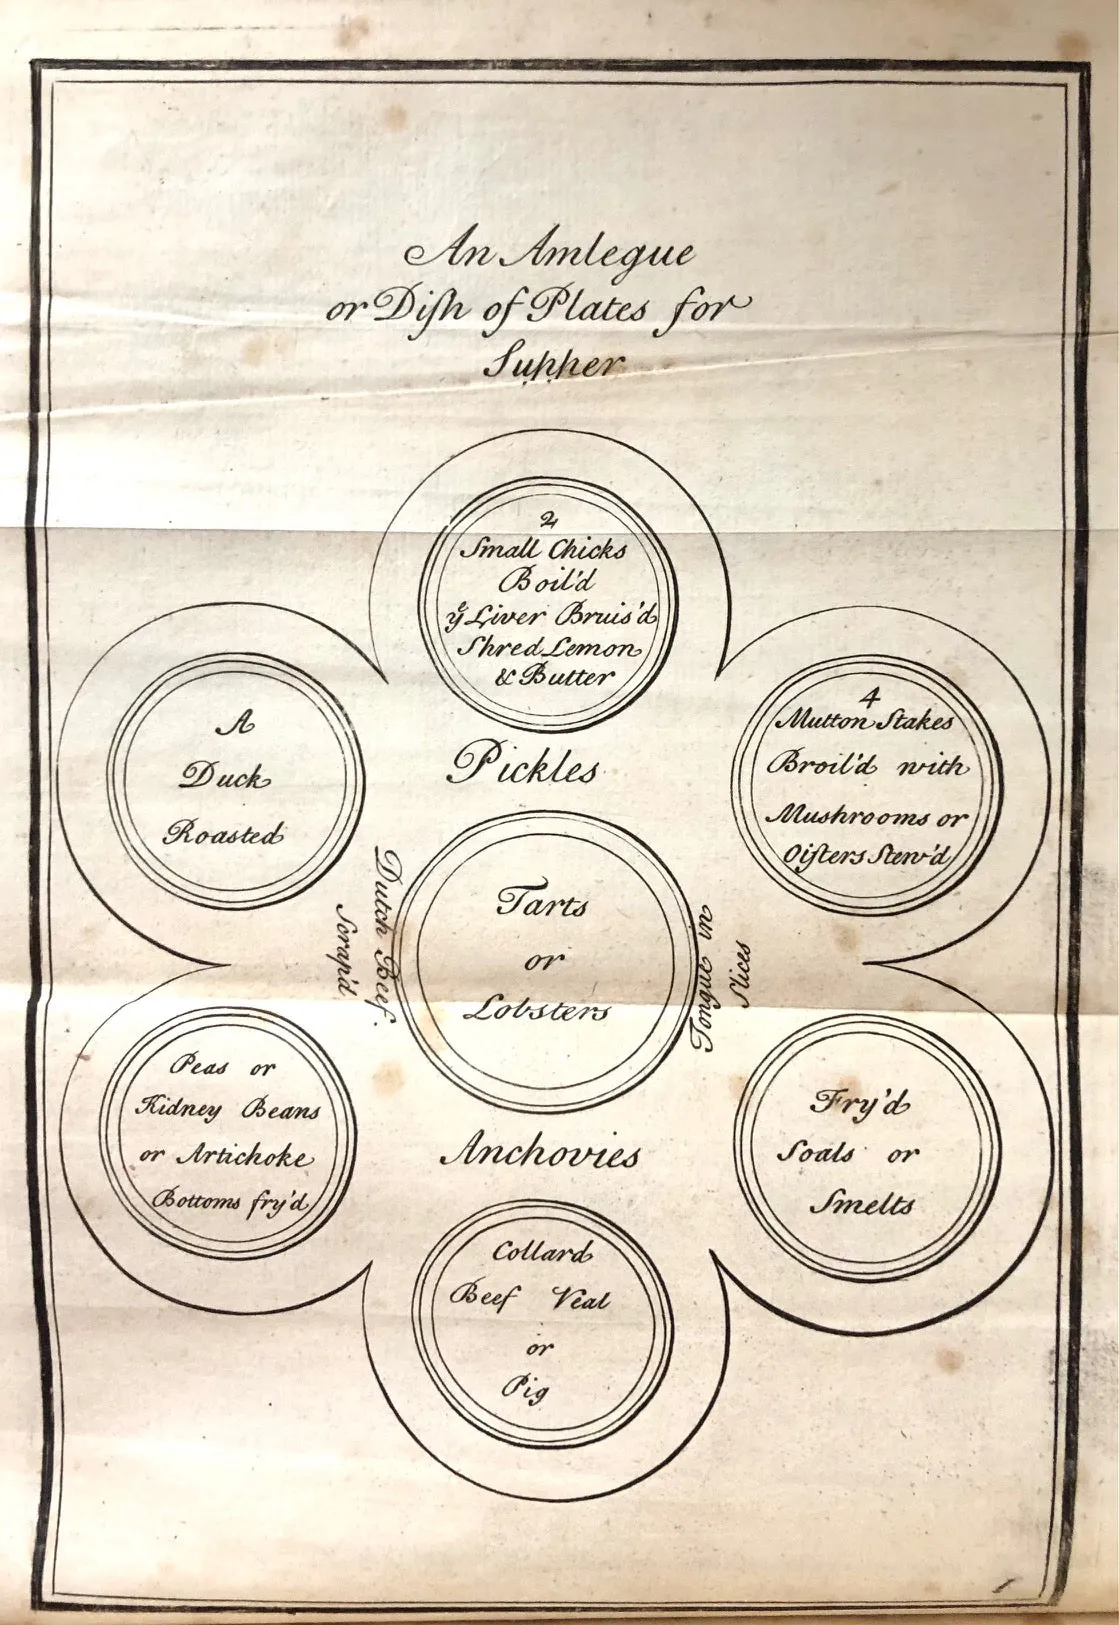 An Amlegue
or Diſh of Plates for
Supper
2
Small Chicks
Boil'd
yͤ Liver Bruis'd
Shred Lemon
& Butter
A
Duck
Roasted
4
Mutton Stakes
Broil'd with
Mushrooms or
Oiſters Stew'd
Pickles
Dutch Beef
Scrap'd
Tarts
or
Lobsters
Tongue in
Slices
Peas or
Kidney Beans
or Artichoke
Bottoms fry'd
Anchovies
Fry'd
Soals or
Smelts
Collard
Beef Veal
or
Pig